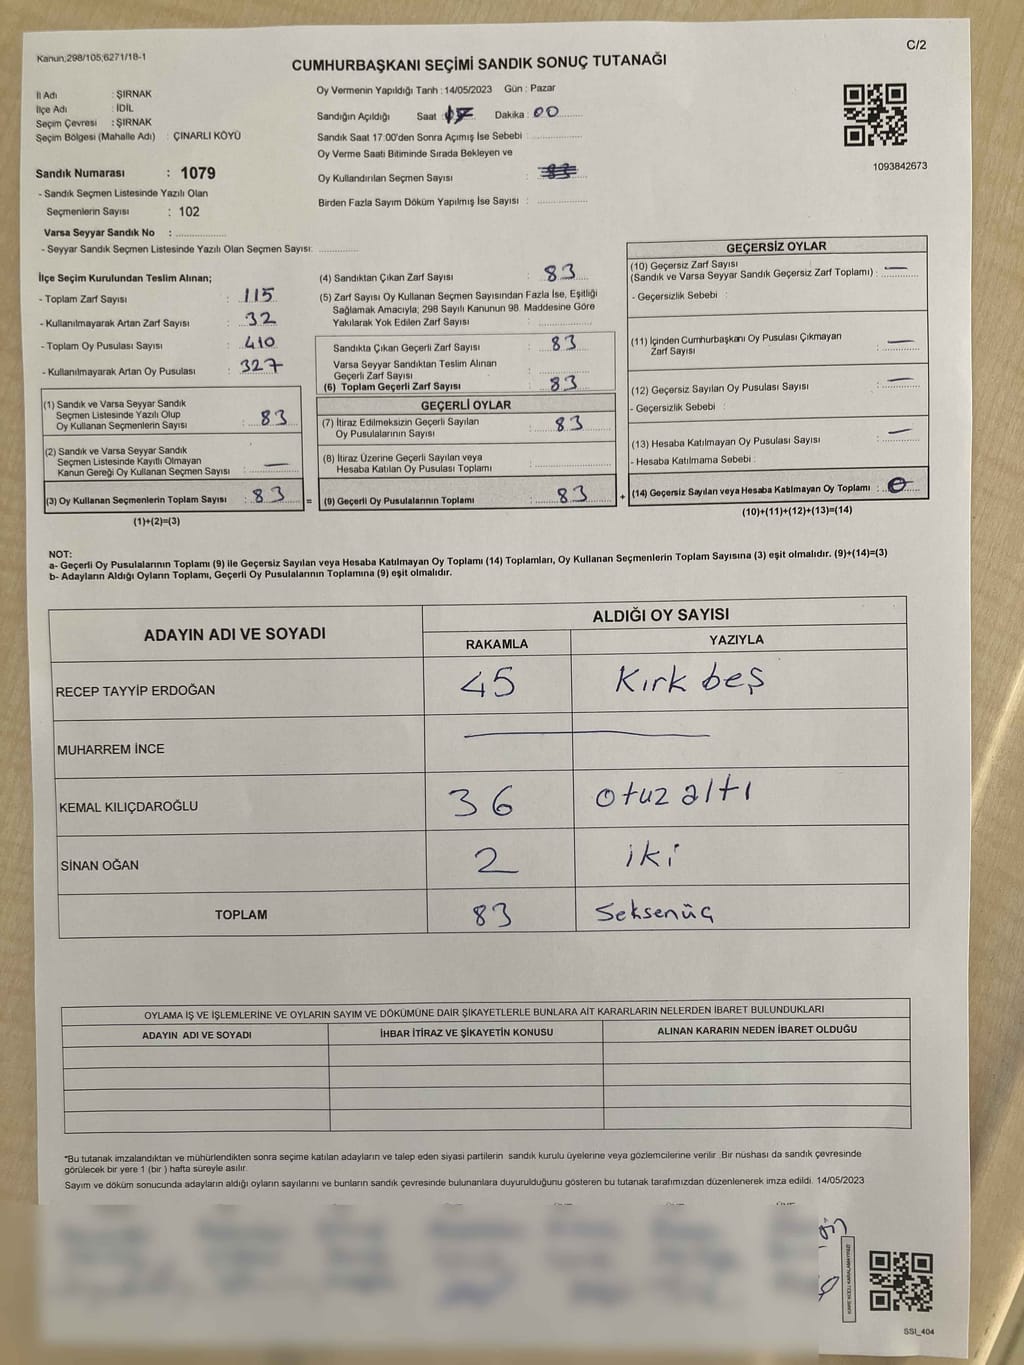 Kanun;298/105;6271/18-1
C/2
CUMHURBAŞKANI SEÇİMİ SANDIK SONUÇ TUTANAĞI
İl Adı : ŞIRNAK
İlçe Adı : İDİL
Seçim Çevresi : ŞIRNAK
Seçim Bölgesi (Mahalle Adı) : ÇINARLI KÖYÜ
Sandık Numarası : 1079
- Sandık Seçmen Listesinde Yazılı Olan
Seçmenlerin Sayısı : 102
Varsa Seyyar Sandık No :
- Seyyar Sandık Seçmen Listesinde Yazılı Olan Seçmen Sayısı:
Oy Vermenin Yapıldığı Tarih : 14/05/2023 Gün : Pazar
Sandığın Açıldığı Saat : Dakika : 00
Sandık Saat 17:00'den Sonra Açımış İse Sebebi :
Oy Verme Saati Bitiminde Sırada Bekleyen ve
Oy Kullandırılan Seçmen Sayısı :
Birden Fazla Sayım Döküm Yapılmış İse Sayısı :
1093842673
İlçe Seçim Kurulundan Teslim Alınan;
- Toplam Zarf Sayısı : 115
- Kullanılmayarak Artan Zarf Sayısı : 32
- Toplam Oy Pusulası Sayısı : 410
- Kullanılmayarak Artan Oy Pusulası : 327
(1) Sandık ve Varsa Seyyar Sandık
Seçmen Listesinde Yazılı Olup
Oy Kullanan Seçmenlerin Sayısı : 83
(2) Sandık ve Varsa Seyyar Sandık
Seçmen Listesinde Kayıtlı Olmayan
Kanun Gereği Oy Kullanan Seçmen Sayısı : —
(3) Oy Kullanan Seçmenlerin Toplam Sayısı : 83
(1)+(2)=(3)
(4) Sandıktan Çıkan Zarf Sayısı : 83
(5) Zarf Sayısı Oy Kullanan Seçmen Sayısından Fazla İse, Eşitliği
Sağlamak Amacıyla; 298 Sayılı Kanunun 98. Maddesine Göre
Yakılarak Yok Edilen Zarf Sayısı :
Sandıkta Çıkan Geçerli Zarf Sayısı : 83
Varsa Seyyar Sandıktan Teslim Alınan
Geçerli Zarf Sayısı :
(6) Toplam Geçerli Zarf Sayısı : 83
GEÇERLİ OYLAR
(7) İtiraz Edilmeksizin Geçerli Sayılan
Oy Pusulalarının Sayısı : 83
(8) İtiraz Üzerine Geçerli Sayılan veya
Hesaba Katılan Oy Pusulası Toplamı :
= (9) Geçerli Oy Pusulalarının Toplamı : 83
GEÇERSİZ OYLAR
(10) Geçersiz Zarf Sayısı
(Sandık ve Varsa Seyyar Sandık Geçersiz Zarf Toplamı) : —
- Geçersizlik Sebebi :
(11) İçinden Cumhurbaşkanı Oy Pusulası Çıkmayan
Zarf Sayısı : —
(12) Geçersiz Sayılan Oy Pusulası Sayısı : —
- Geçersizlik Sebebi :
(13) Hesaba Katılmayan Oy Pusulası Sayısı : —
- Hesaba Katılmama Sebebi :
+ (14) Geçersiz Sayılan veya Hesaba Katılmayan Oy Toplamı : 0
(10)+(11)+(12)+(13)=(14)
NOT:
a- Geçerli Oy Pusulalarının Toplamı (9) ile Geçersiz Sayılan veya Hesaba Katılmayan Oy Toplamı (14) Toplamları, Oy Kullanan Seçmenlerin Toplam Sayısına (3) eşit olmalıdır. (9)+(14)=(3)
b- Adayların Aldığı Oyların Toplamı, Geçerli Oy Pusulalarının Toplamına (9) eşit olmalıdır.
ADAYIN ADI VE SOYADI
ALDIĞI OY SAYISI
RAKAMLA YAZIYLA
RECEP TAYYİP ERDOĞAN 45 Kırk beş
MUHARREM İNCE
KEMAL KILIÇDAROĞLU 36 otuz altı
SİNAN OĞAN 2 iki
TOPLAM 83 Seksenüç
OYLAMA İŞ VE İŞLEMLERİNE VE OYLARIN SAYIM VE DÖKÜMÜNE DAİR ŞİKAYETLERLE BUNLARA AİT KARARLARIN NELERDEN İBARET BULUNDUKLARI
ADAYIN ADI VE SOYADI İHBAR İTİRAZ VE ŞİKAYETİN KONUSU ALINAN KARARIN NEDEN İBARET OLDUĞU
*Bu tutanak imzalandıktan ve mühürlendikten sonra seçime katılan adayların ve talep eden siyasi partilerin sandık kurulu üyelerine veya gözlemcilerine verilir .Bir nüshası da sandık çevresinde
görülecek bir yere 1 (bir ) hafta süreyle asılır.
Sayım ve döküm sonucunda adayların aldığı oyların sayılarını ve bunların sandık çevresinde bulunanlara duyurulduğunu gösteren bu tutanak tarafımızdan düzenlenerek imza edildi. 14/05/2023
SSI_404